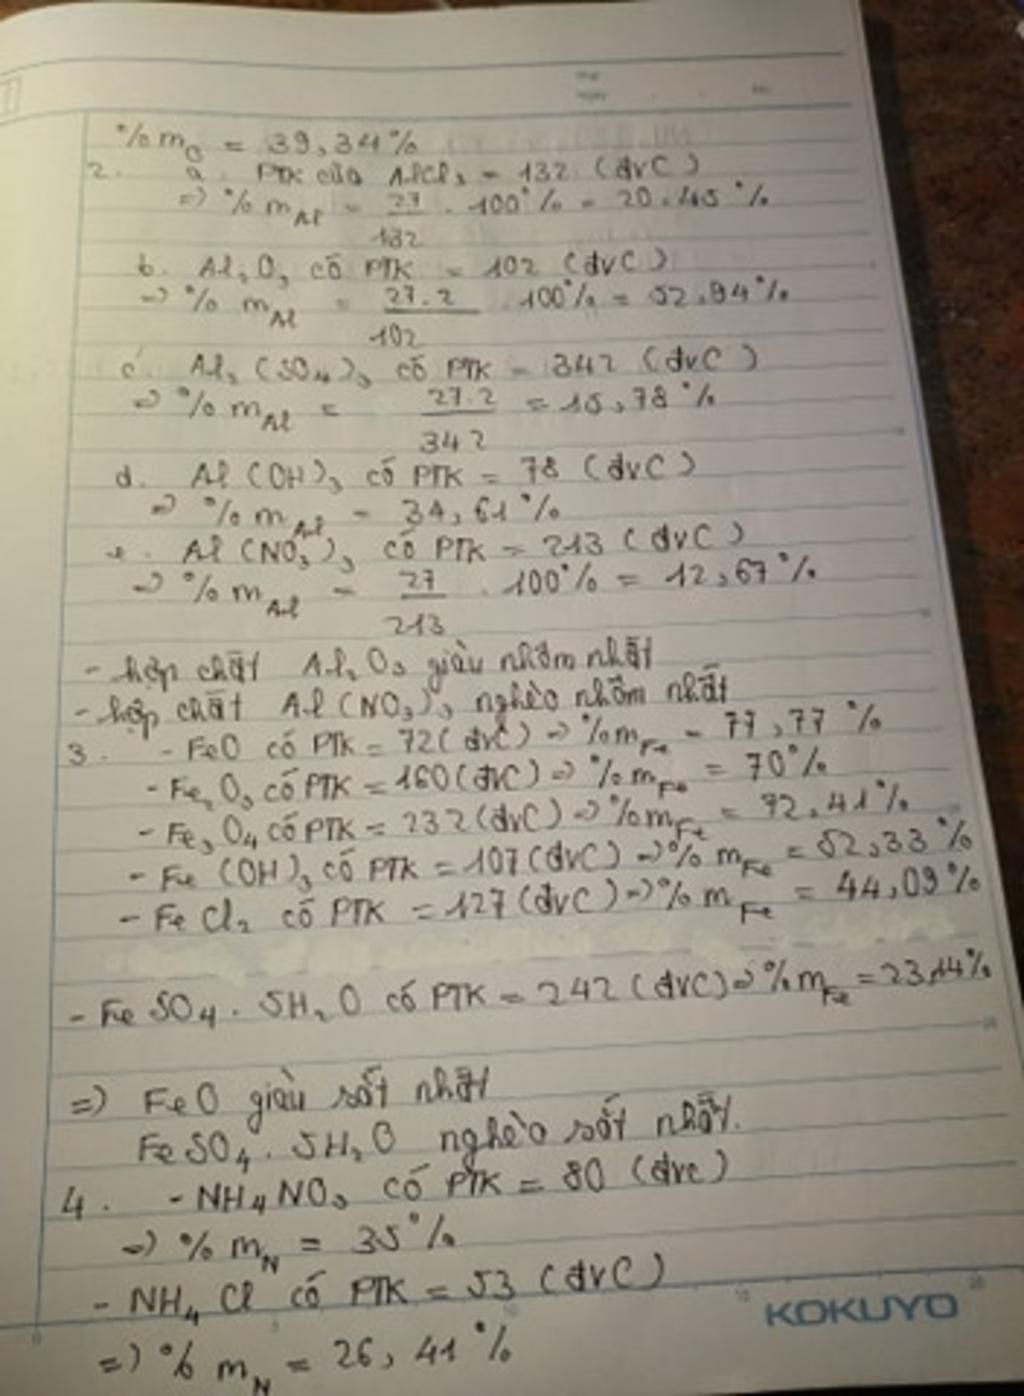 %m_O = 39,34%
2. a. PTK của AlCl₃ = 132 (đvC)
=) %m_Al = 27/132 . 100% = 20,45%
b. Al₂O₃ có PTK = 102 (đvC)
=) %m_Al = 27.2/102 . 100% = 52,94%
c. Al₂(SO₄)₃ có PTK = 342 (đvC)
=) %m_Al = 27.2/342 = 15,78%
d. Al(OH)₃ có PTK = 78 (đvC)
=) %m_Al = 34,61%
e. Al(NO₃)₃ có PTK = 213 (đvC)
=) %m_Al = 27/213 . 100% = 12,67%
- hợp chất Al₂O₃ giàu nhôm nhất
- hợp chất Al(NO₃)₃ nghèo nhôm nhất
3. - FeO có PTK = 72 (đvC) =) %m_Fe = 77,77%
- Fe₂O₃ có PTK = 160 (đvC) =) %m_Fe = 70%
- Fe₃O₄ có PTK = 232 (đvC) =) %m_Fe = 72,41%
- Fe(OH)₃ có PTK = 107 (đvC) =) %m_Fe = 52,33%
- FeCl₂ có PTK = 127 (đvC) =) %m_Fe = 44,09%
- FeSO₄.5H₂O có PTK = 242 (đvC) =) %m_Fe = 23,14%
=) FeO giàu sắt nhất
FeSO₄.5H₂O nghèo sắt nhất.
4. - NH₄NO₃ có PTK = 80 (đvc)
=) %m_N = 35%
- NH₄Cl có PTK = 53 (đvC)
KOKUYO
=) %m_N = 26,41%